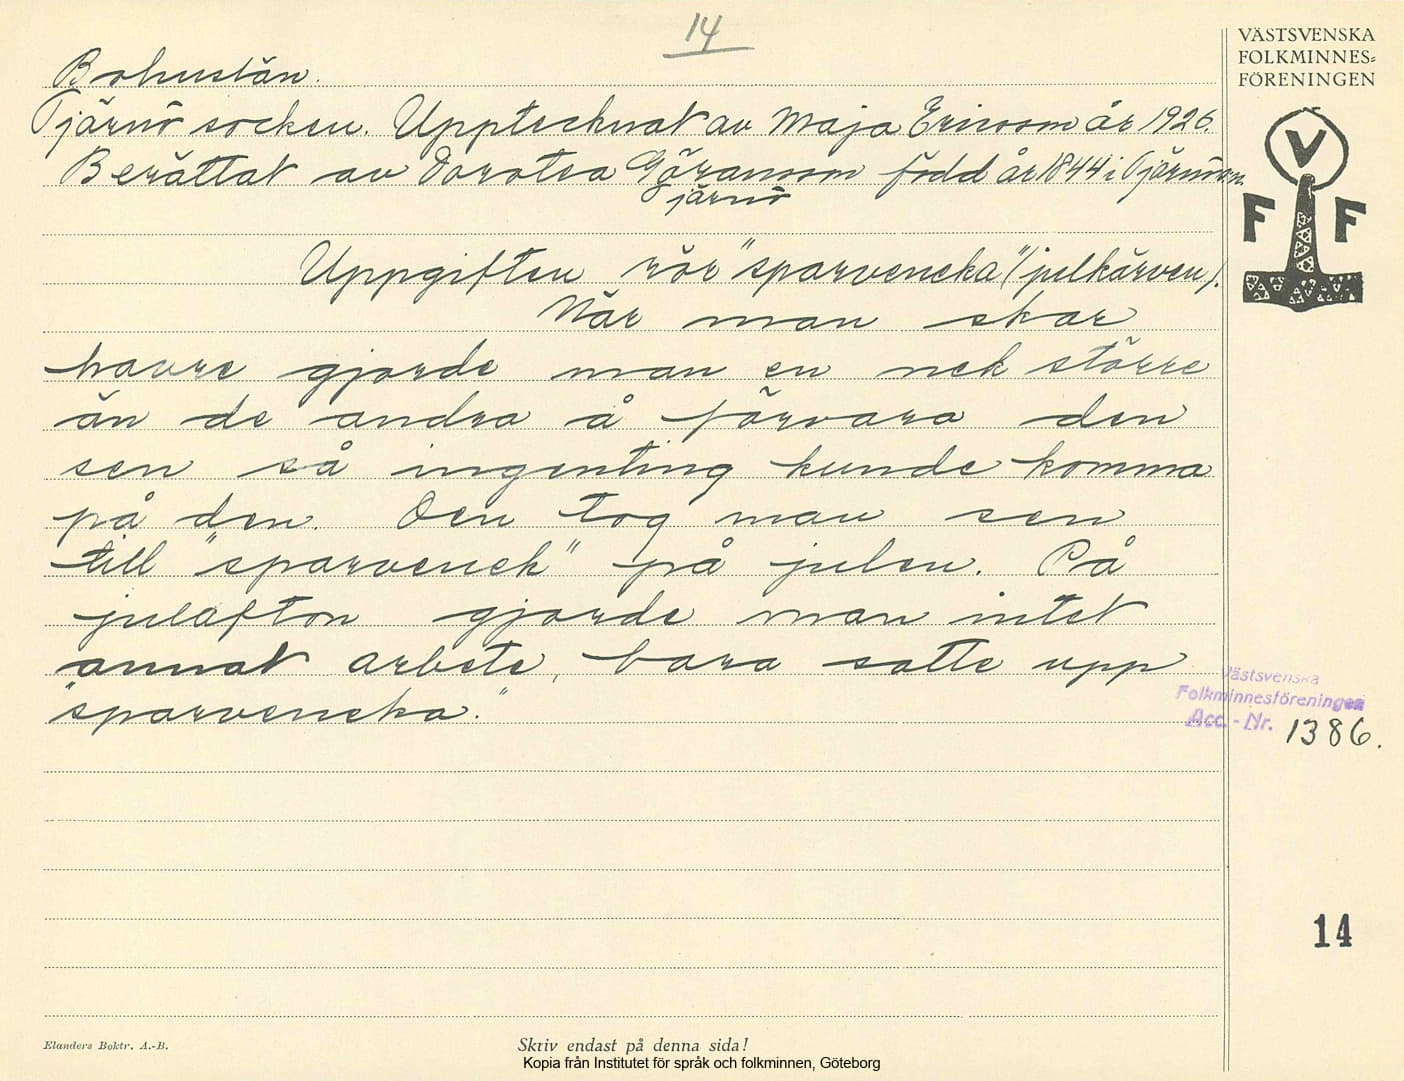 14
VÄSTSVENSKA
FOLKMINNES=
FÖRENINGEN
V
F F
Bohuslän.
Tjärnö socken. Upptecknat av Maja Ericson år 1926.
Berättat av Dorotea Göransson född år 1844 i Tjärnö sn
Tjärnö
Uppgiften rör "sparvenecka" (julkärven).
När man skar
havre gjorde man en nek större
än de andra å förvara den
sen så ingenting kunde komma
på den. Den tog man sen
till "sparvenek" på julen. På
julafton gjorde man intet
annat arbete, bara satte upp
"sparvenecka."
Västsvenska
Folkminnesföreningen
Acc. - Nr. 1386.
14
Elanders Boktr. A.-B.
Skriv endast på denna sida!
Kopia från Institutet för språk och folkminnen, Göteborg